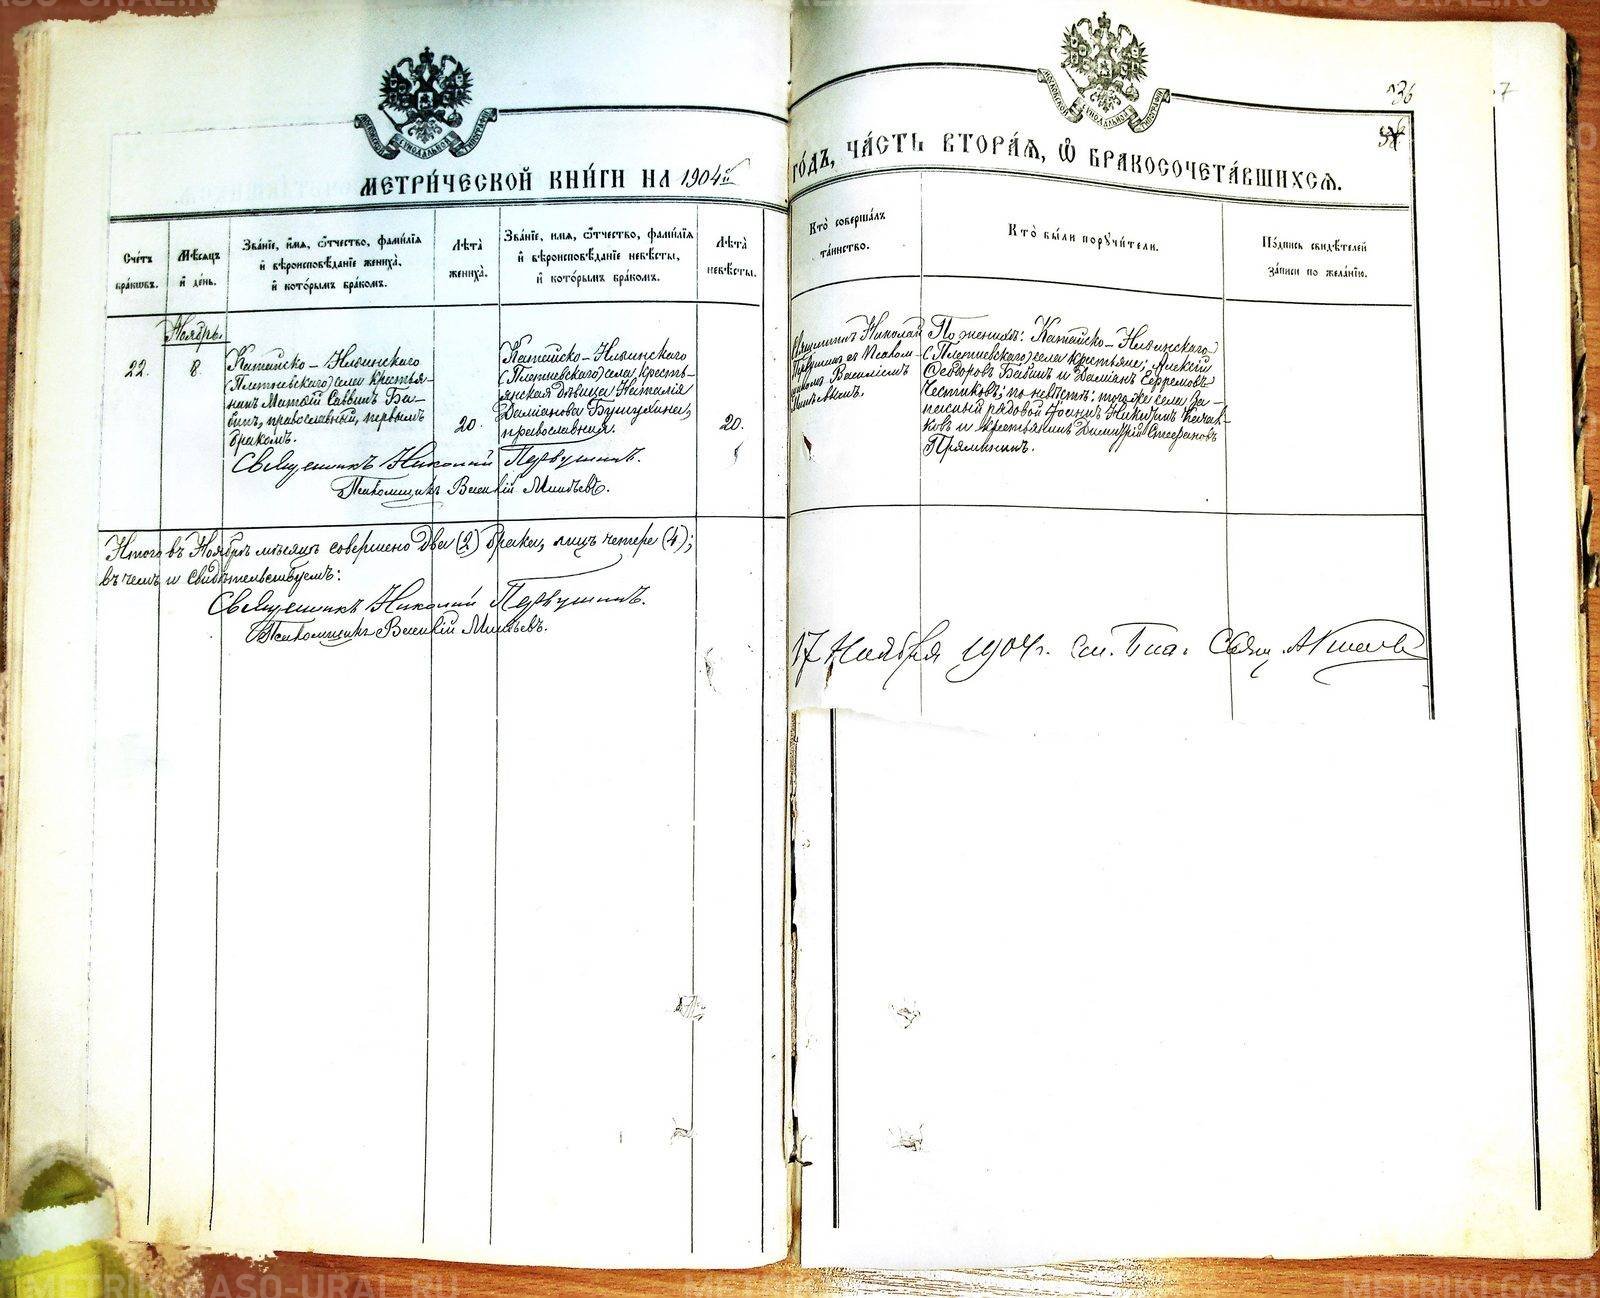 METRIKI.GASO-URAL.RU
36
7
МЕТРИ́ЧЕСКОЙ КНИ́ГИ НА 1904й
ГО́ДЪ, ЧА́СТЬ ВТОРА́Я, Ѿ БРАКОСОЧЕТА́ВШИХСЯ.
Сче́тъ бра́кѡвъ.
Мѣ́сяцъ и҆ де́нь.
Зва́нїе, и҆́мя, ѻ҆́тчество, фами́лїя
и҆ вѣроисповѣ́данїе жениха̀,
и҆ кото́рымъ бра́комъ.
Лѣ́та жениха̀.
Зва́нїе, и҆́мя, ѻ҆́тчество, фами́лїя
и҆ вѣроисповѣ́данїе невѣ́сты,
и҆ кото́рымъ бра́комъ.
Лѣ́та невѣ́сты.
Кто̀ соверша́лъ
та́инство.
Кто̀ бы́ли поручи́тели.
По́дпись свидѣ́телей
за́писи по жела́нїю.
Ноябрь.
22.
8.
Катайско-Ильинскаго
(Плетневскаго) села крестья-
нинъ Матѳій Саввинъ Ба-
бинъ, православный, первымъ
бракомъ.
20.
Катайско-Ильинскаго
(Плетневскаго) села, кресть-
янская дѣвица Наталія
Даміанова
православная.
20.
Священникъ Николай
Первушинъ съ Псалом-
щикомъ Василіемъ
По женихѣ: Катайско-Ильинскаго
(Плетневскаго) села крестьяне: Алексій
Ѳеодоровъ Бабинъ и Даміанъ Ефремовъ
по невѣстѣ: того же села за-
пасный рядовой Іоаннъ Никитинъ
и крестьянинъ Димитрій Стефановъ
Священникъ Николай Первушинъ.
Псаломщикъ Василій
Итого въ Ноябрѣ мѣсяцѣ совершено два (2) брака, лицъ четыре (4);
въ чемъ и свидѣтельствуемъ:
Священникъ Николай Первушинъ.
Псаломщикъ Василій
17 Ноября 1904 г. Свящ.
METRIKI.GASO-URAL.RU
METRIKI.GASO-URAL.RU
METRIKI.GASO